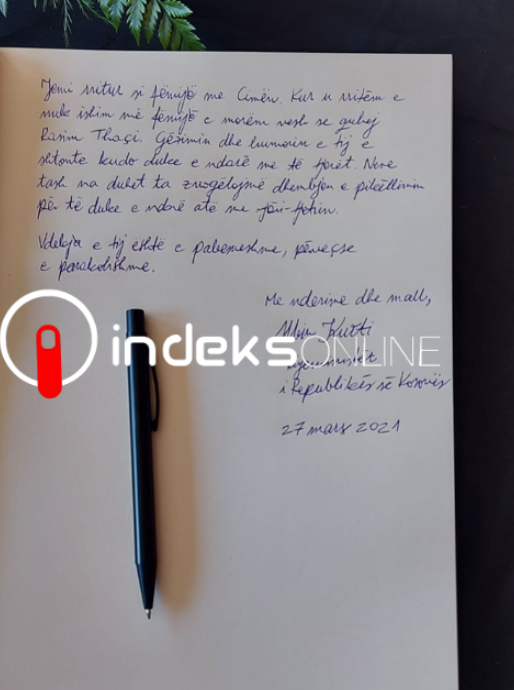 Jemi rritur si fëmijë me Cimën. Kur u rritëm e
nuk ishim më fëmijë e morëm vesh se quhej
Rasim Thaçi. Gëzimin dhe humorin e tij e
shtonte kudo duke e ndarë me të tjerët. Neve
tash na duhet ta zvogëlojmë dhembjen e pikëllimin
për të duke e ndarë atë me njëri-tjetrin.
Vdekja e tij është e pabesueshme, përveçse
e parakohshme.
Me nderime dhe mall,
Albin Kurti
kryeministët
i Republikës së Kosovës
27 mars 2021
indeksONLINE